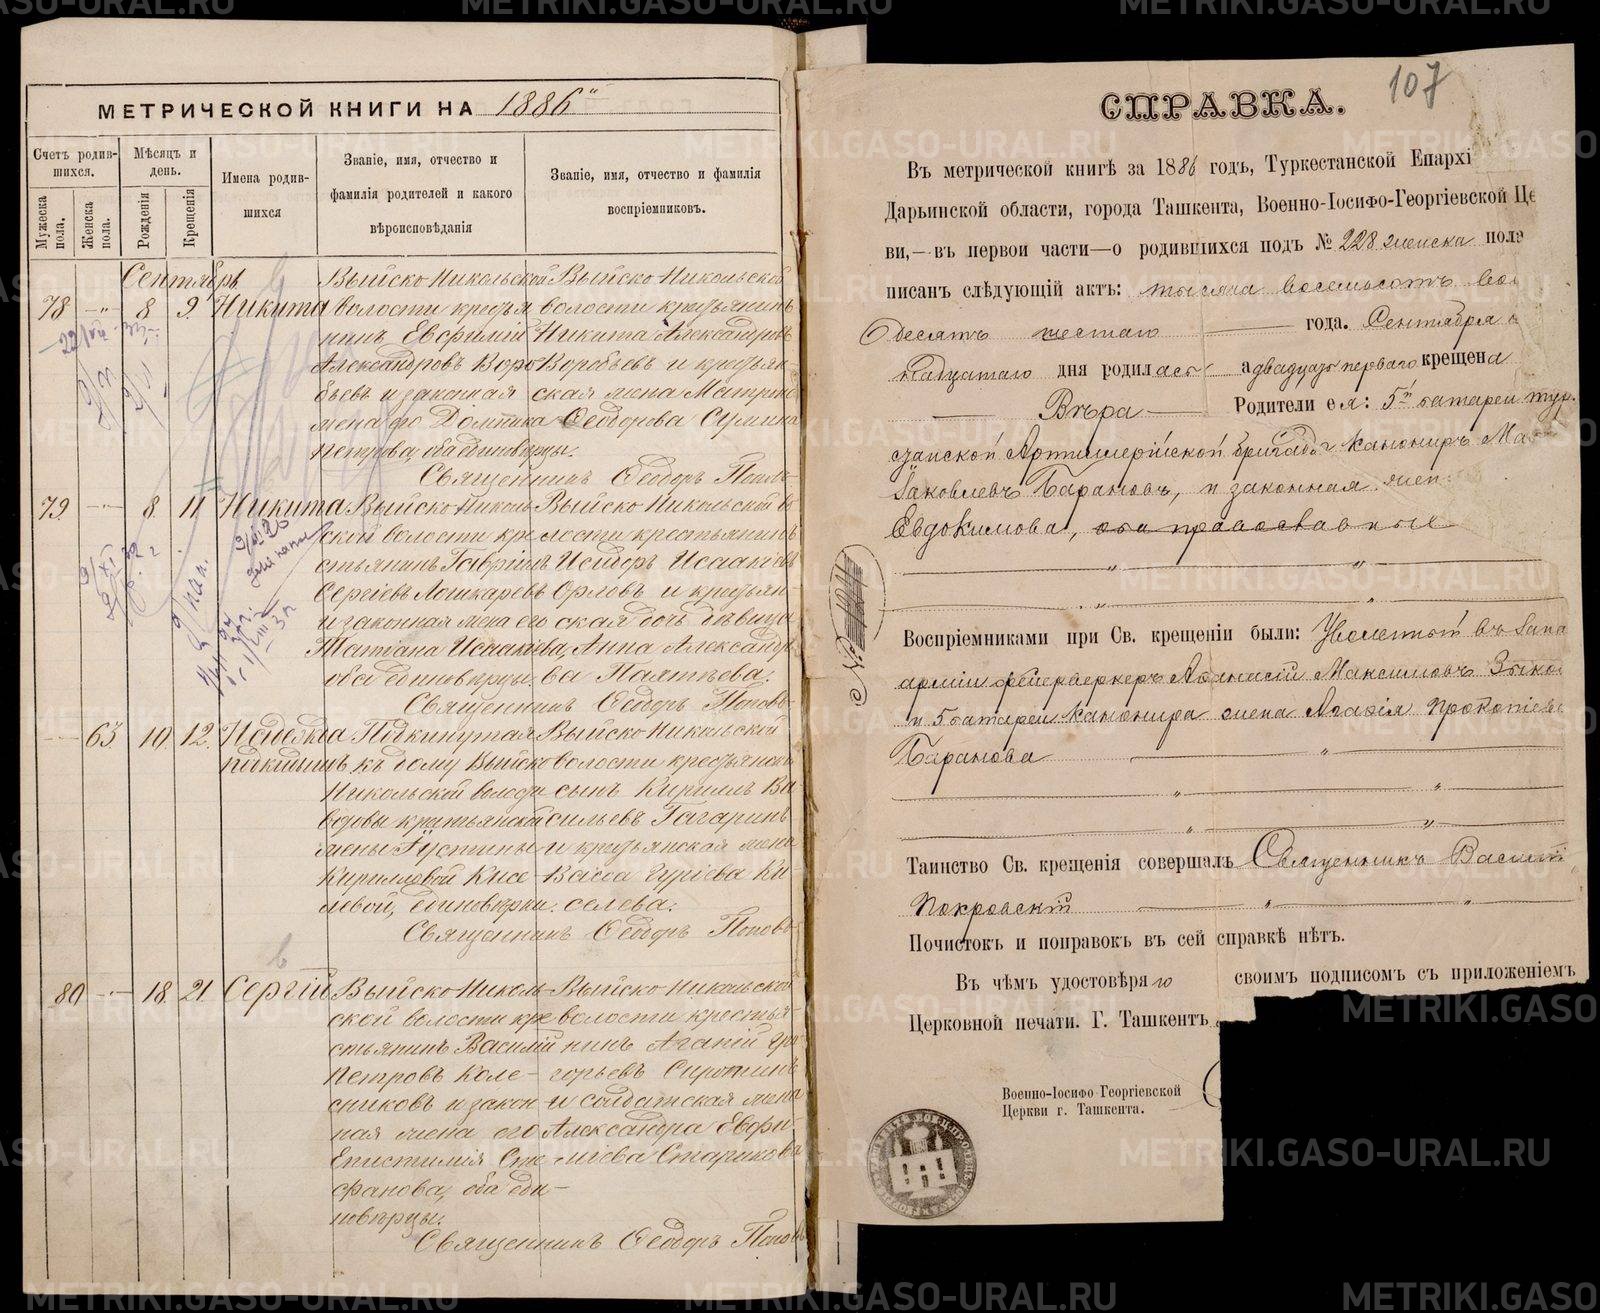 МЕТРИЧЕСКОЙ КНИГИ НА 1886
Счетъ родив-
шихся.
Мѣсяцъ и
день.
Имена родив-
шихся
Званіе, имя, отчество и
фамилія родителей и какого
вѣроисповѣданія
Званіе, имя, отчество и фамилія
воспріемниковъ.
Мужеска
пола.
Женска
пола.
Рожденія
Крещенія
Сентябрь
78 8 9 Никита
Выйско Никольской
волости крестья
нинъ Евфимій
Александровъ Воро
бьевъ и законная
жена его Домника
Петрова, оба единовѣрцы.
Выйско Никольской
волости крестьянинъ
Никита Александровъ
Воробьевъ и крестьян
ская жена Матрона
Ѳеодорова
Священникъ Ѳеодоръ Попов
79 8 11 Никита
Выйско Николь
ской волости кре
стьянинъ Гавріилъ
Сергіевъ Лошкаревъ
и законная жена его
Татіана Исаакова,
оба единовѣрцы.
Выйско Никольской во
лости крестьянинъ
Исидоръ Исааковъ
Орловъ и крестьян
ская дочь дѣвица
Анна Александро
ва
Священникъ Ѳеодоръ Поповъ
63 10 12
Подкинутая
къ дому Выйско
Никольской волости
вдовы крестьянской
жены Іустины
Кирилловой Кисе
левой, единовѣрки.
Выйско Никольской
волости крестьянск
сынъ Кириллъ Ва
сильевъ Гагаринъ
и крестьянская жена
Васса Гуріева Ки
селева.
Священникъ Ѳеодоръ Поповъ
80 18 21 Сергій
Выйско Николь-
ской волости кре
стьянинъ Василій
Петровъ Коле-
сниковъ и закон
ная жена его
Епистимія Сте
фанова, оба еди-
новѣрцы.
Выйско Никольской
волости крестья-
нинъ Агапій Гри
горьевъ
и солдатская жена
Александра Евфи
міева Старикова
Священникъ Ѳеодоръ Попов
107
СПРАВКА.
Въ метрической книгѣ за 1886 годъ, Туркестанской Епархі
Дарьинской области, города Ташкента, Военно-Іосифо-Георгіевской Це
ви,—въ первои части—о родившихся подъ № 228 женска пола
писанъ слѣдующій актъ: тысяча восемьсотъ вос
десятъ шестаго года. Сентября
надцатаго дня родилась а двадцать перваго крещена
Вѣра Родители ея: 5й батареи Тур.
Артиллерійской бригады канониръ Ма
Іаковлевъ Барановъ, и законная жен
Евдокимова, оба православные
Воспріемниками при Св. крещеніи были: Уволенный въ запа
арміи фейерверкеръ Аѳанасій Максимовъ Зыко
и 5 батареи канонира жена Агафія Прокопіева
Баранова
Таинство Св. крещенія совершалъ Священникъ Василій
Покровскій
Почистокъ и поправокъ въ сей справкѣ нѣтъ.
Въ чѣмъ удостовѣряю своимъ подписомъ съ приложеніемъ
Церковной печати. Г. Ташкентъ
Военно-Іосифо Георгіевской
Церкви г. Ташкента.
METRIKI.GASO-URAL.RU